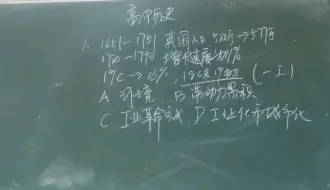 高中历史
1. 1651—1751 英国人口 521万→577万
1780—1790 增长速度达1%
19C→16%, 18C末19初 (一工)
A. 环境 B. 劳动力累积
C. 工业革命完成 D. 工业化和城市化